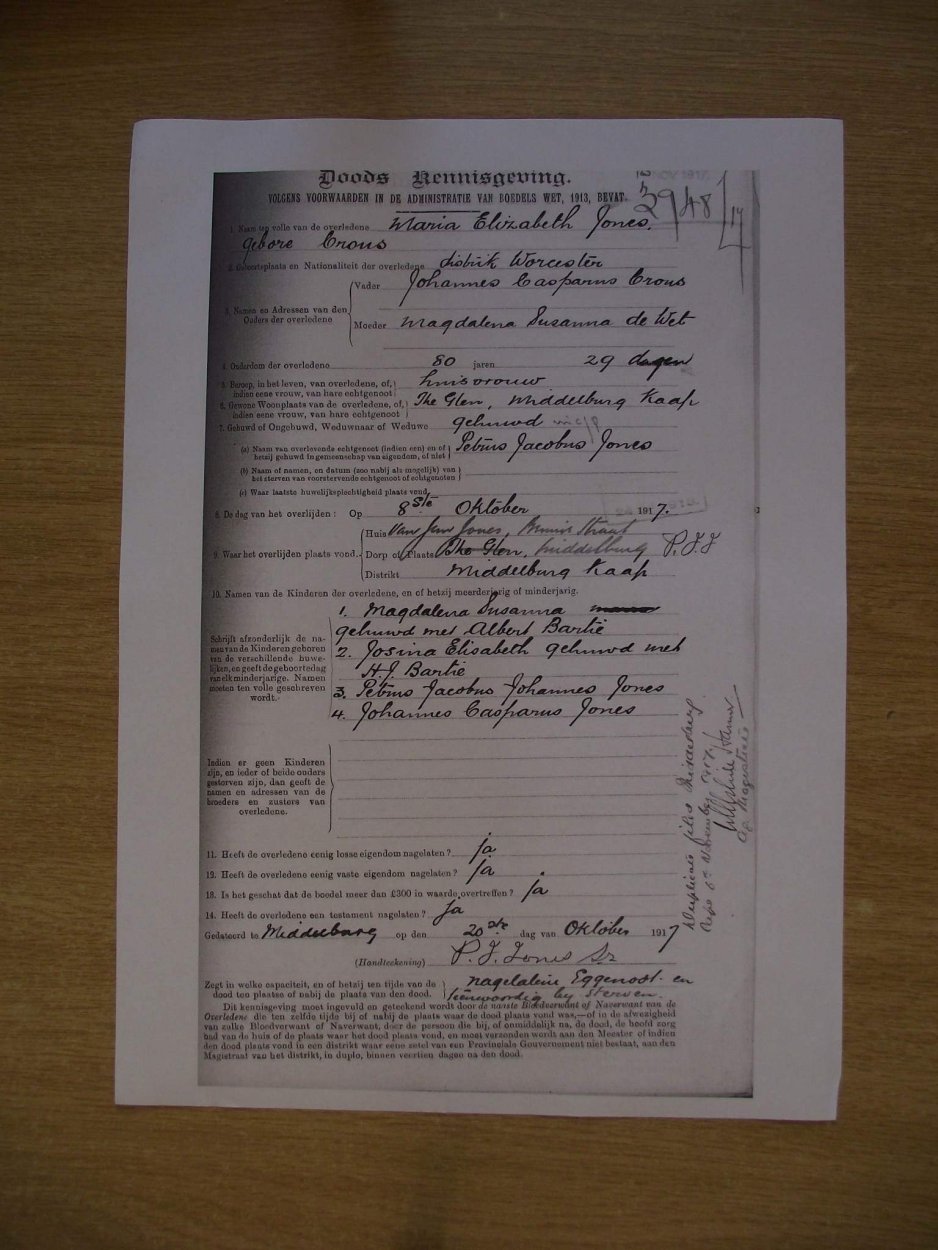 Doods Kennisgeving.
VOLGENS VOORWAARDEN IN DE ADMINISTRATIE VAN BOEDELS WET, 1913, BEVAT.
3948
17
1. Naam ten volle van de overledene Maria Elizabeth Jones,
gebore Crous
2. Geboorteplaats en Nationaliteit der overledene distrik Worcester
3. Namen en Adressen van den Ouders der overledene
Vader Johannes Casparus Crous
Moeder Magdalena Susanna de Wet
4. Ouderdom der overledene 80 jaren 29 dagen
5. Beroep, in het leven, van overledene, of, indien eene vrouw, van hare echtgenoot huisvrouw
6. Gewone Woonplaats van de overledene, of, indien eene vrouw, van hare echtgenoot The Glen, Middelburg Kaap
7. Gehuwd of Ongehuwd, Weduwnaar of Weduwe gehuwd
(a) Naam van overlevende echtgenoot (indien een) en of hetzij gehuwd in gemeenschap van eigendom, of niet Petrus Jacobus Jones
(b) Naam of namen, en datum (zoo nabij als mogelijk) van het sterven van voorstervende echtgenoot of echtgenoten
(c) Waar laatste huwelijksplechtigheid plaats vond
8. De dag van het overlijden: Op 8ste Oktober 1917.
9. Waar het overlijden plaats vond.
Huis Van Jones, Straat
Dorp of Plaats The Glen, Middelburg P.J.J
Distrikt Middelburg Kaap
10. Namen van de Kinderen der overledene, en of hetzij meerderjarig of minderjarig.
Schrijft afzonderlijk de namen van de Kinderen geboren van de verschillende huwelijken, en geeft de geboortedag van elk minderjarige. Namen moeten ten volle geschreven wordt.
1. Magdalena Susanna
gehuwd met Albert Bartie
2. Josina Elisabeth gehuwd met
H.J. Bartie
3. Petrus Jacobus Johannes Jones
4. Johannes Casparus Jones
Indien er geen Kinderen zijn, en ieder of beide ouders gestorven zijn, dan geeft de namen en adressen van de broeders en zusters van overledene.
11. Heeft de overledene eenig losse eigendom nagelaten? Ja
12. Heeft de overledene eenig vaste eigendom nagelaten? Ja
13. Is het geschat dat de boedel meer dan £300 in waarde overtreffen? Ja
14. Heeft de overledene een testament nagelaten? Ja
Gedateerd te Middelburg op den 20ste dag van Oktober 1917
(Handteekening) P. J. Jones Sr
Zegt in welke capaciteit, en of hetzij ten tijde van de dood ten plaatse of nabij de plaats van den dood. nagelatene Eggenoot en
teenwoordig by sterven.
Dit kennisgeving moet ingevuld en geteekend wordt door de naaste Bloedverwant of Naverwant van de
Overledene die ten zelfde tijde bij of nabij de plaats waar de dood plaats vond was,—of in de afwezigheid
van zulke Bloedverwant of Naverwant, door de persoon die bij, of onmiddelijk na, de dood, de hoofd zorg
had van de huis of de plaats waar het dood plaats vond, en moet verzonden wordt aan den Meester of indien
den dood plaats vond in een distrikt waar eene zetel van een Provinciale Gouvernement niet bestaat, aan den
Magistraat van het distrikt, in duplo, binnen veertien dagen na den dood.
November 1917
Magistrate